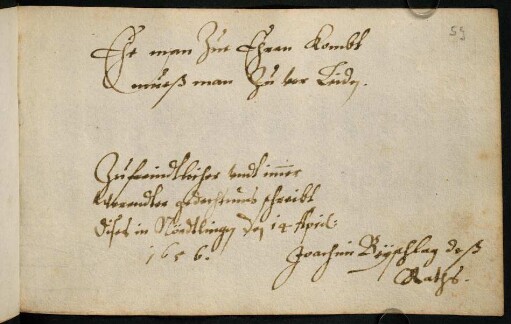 59
Ehe man Zue Ehren Kombt
mueß man Zu vor Leiden.
Zu freindtlicher undt immer
werendter gedechtnus schreibt
dises in Nördtlingen den 14 April:
1656.
Joachim Beyschlag deß
Raths.